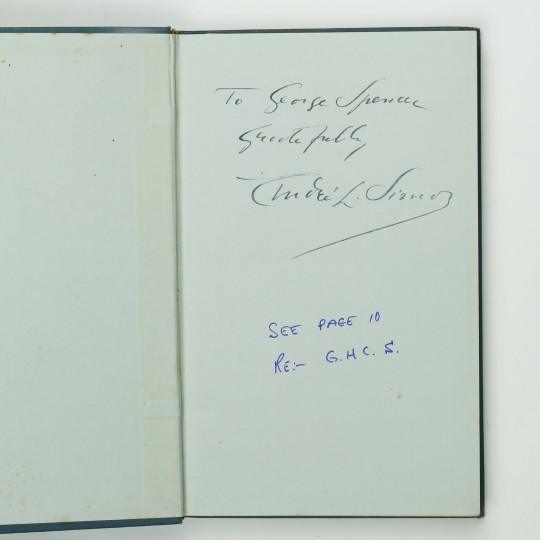 To George Spencer
Gratefully
André L. Simon
SEE PAGE 10
RE:- G.H.C.S.